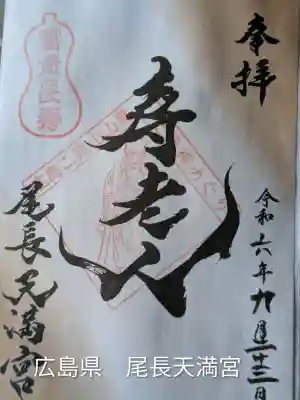 奉拝
令和六年九月二十二日
寿老人
尾長天満宮
広島県 尾長天満宮